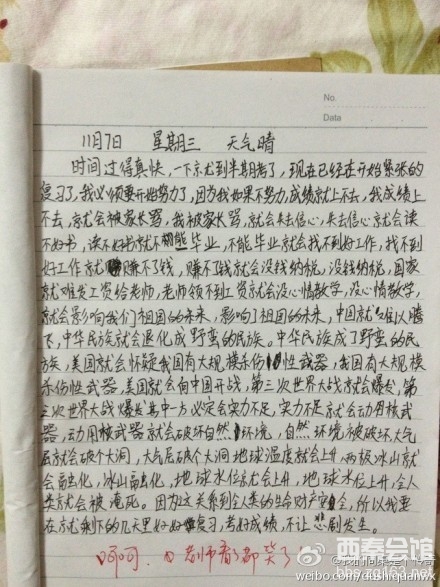 No.
Data
11月7日 星期三 天气晴
时间过得真快,一下就到半期考了,现在已经走开始紧张的
复习了,我必须要开始努力了,因为我如果不努力,成绩就上不去,我成绩上
不去,就会被家长骂,我被家长骂,就会失去信心,失去信心就会读
不好书,读不好书就不能毕业,不能毕业就会找不到好工作,找不到
好工作就赚不了钱,赚不了钱就会没钱纳税,没钱纳税,国家
就难发工资给老师,老师领不到工资就会没心情教学,没心情教学,
就会影响我们祖国的未来,影响了祖国的未来,中国就难以腾
飞,中华民族就会退化成野蛮的民族。中华民族成了野蛮的民
族,美国就会怀疑我国有大规模杀伤性武器,我国有大规模
杀伤性武器,美国就会向中国开战,第三次世界大战就会爆发,第
三次世界大战爆发其中一方必定会实力不足,实力不足就会动用核武
器,动用核武器就会破坏自然环境,自然环境被破坏,大气
层就会破个大洞,大气层破个大洞地球温度就会上升,两极冰山就
会融化,冰山融化,地球水位就会上升,地球水位上升,全人
类就会被淹死。因为这关系到全人类的生命财产安全,所以我要
在就剩下的几天里好好复习,考好成绩,不让悲剧发生。
呵呵 老师看了都笑了
西秦会馆
bbs.zg163.net
weibo.com/dushiqinwx